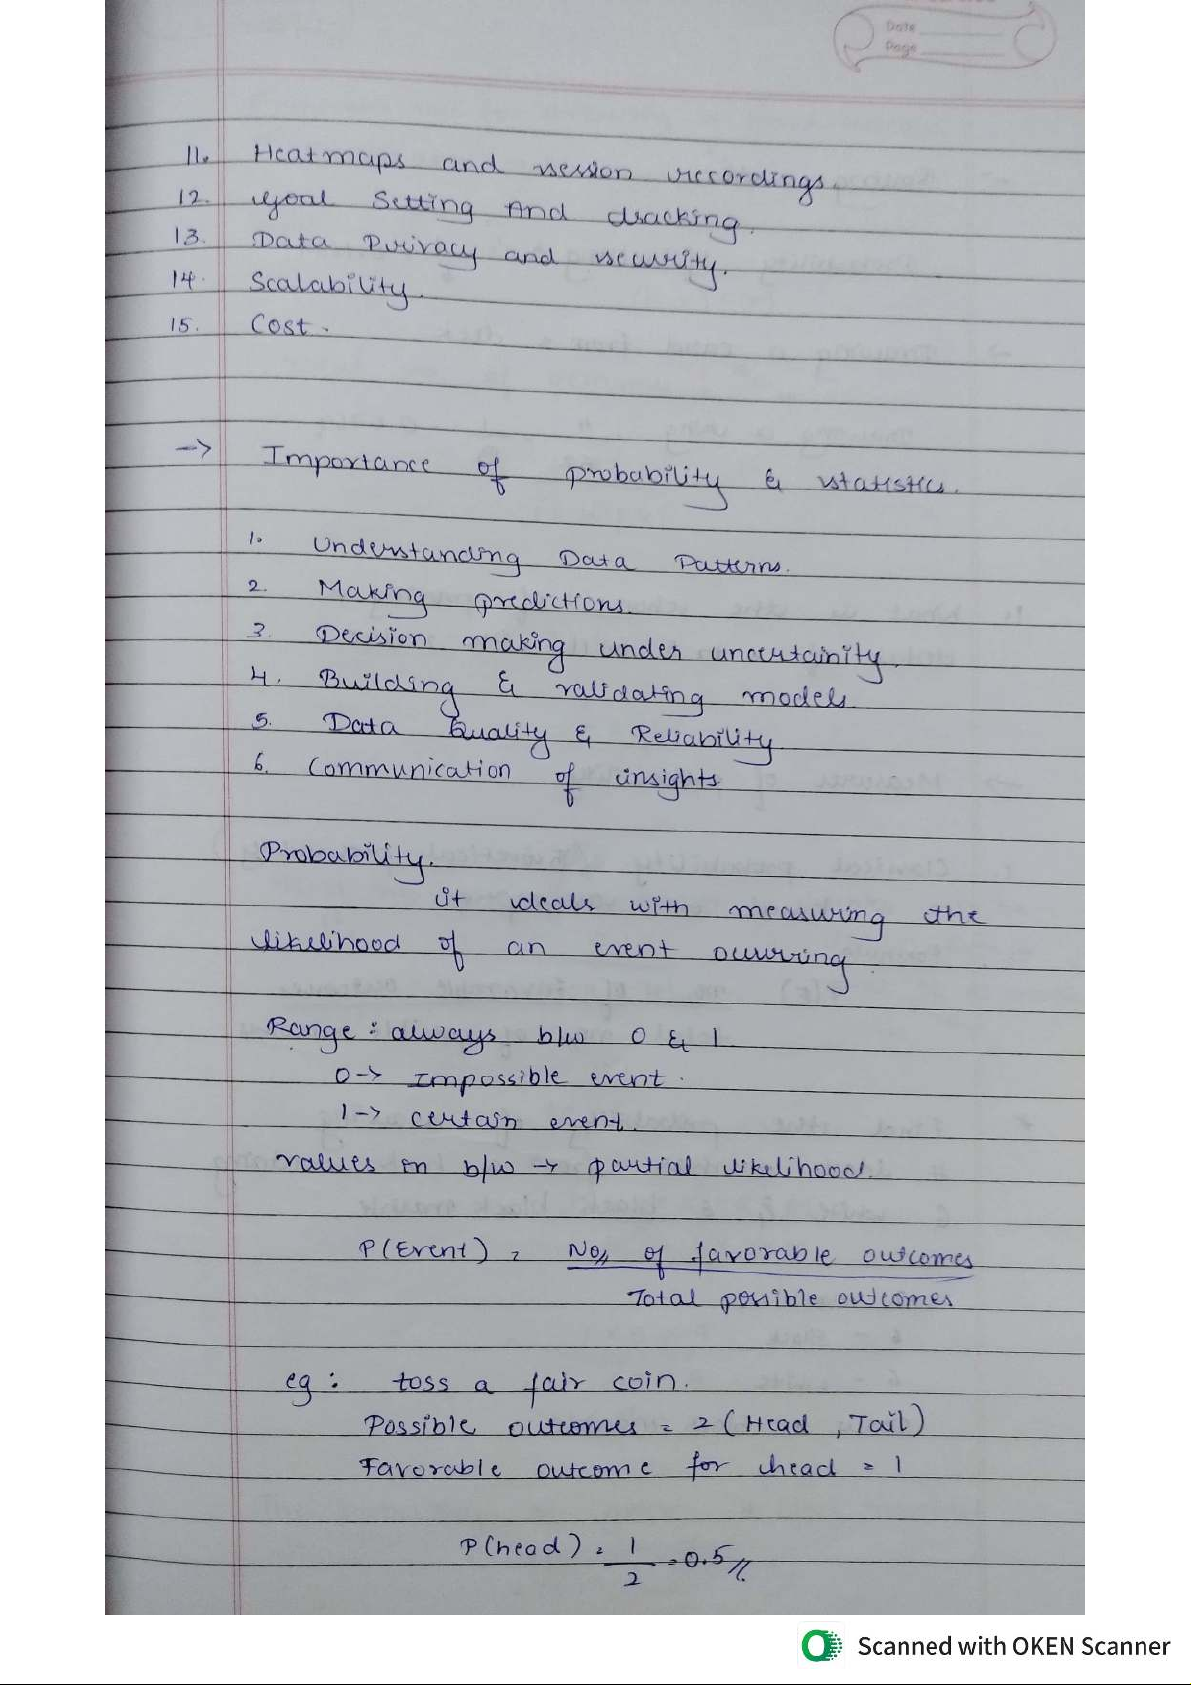 Date
Page
11. Heatmaps and session recordings.
12. Goal Setting And tracking.
13. Data Privacy and security.
14. Scalability.
15. Cost.
-> Importance of probability & statistics.
1. Understanding Data Patterns.
2. Making predictions.
3. Decision making under uncertainity.
4. Building & validating models.
5. Data Quality & Reliability
6. Communication of insights
Probability.
it deals with measuring the
likelihood of an event occurring.
Range : always b/w 0 & 1
0 -> Impossible event.
1 -> certain event.
values in b/w -> partial likelihood.
P(Event) = No, of favorable outcomes
Total possible outcomes
eg : toss a fair coin.
Possible outcomes = 2 (Head, Tail)
Favorable outcome for head = 1
P(head) = 1/2 = 0.5//.
Scanned with OKEN Scanner